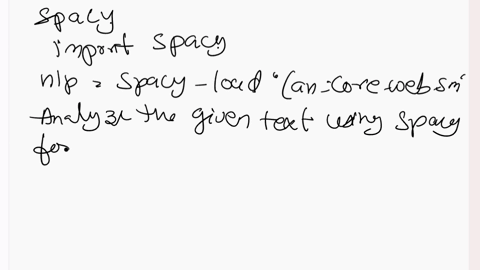 spacy
import spacy
nlp = spacy-load "(an-core web sm"
Analyze the given text using spacy
for